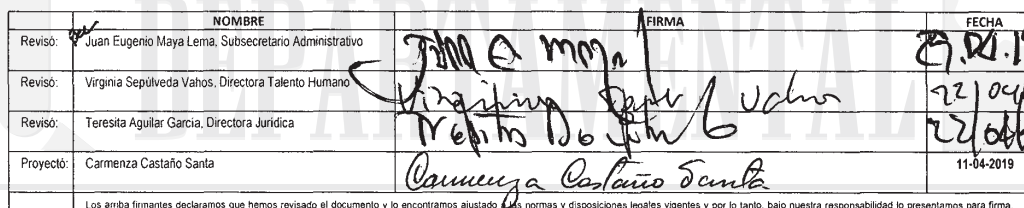 DEPARTAMENTAL
NOMBRE FIRMA FECHA
Revisó: Juan Eugenio Maya Lema, Subsecretario Administrativo
Revisó: Virginia Sepúlveda Vahos, Directora Talento Humano Virginia Vahos 22/04/
Revisó: Teresita Aguilar Garcia, Directora Jurídica 22/04/
Proyectó: Carmenza Castaño Santa Carmenza Castaño Santa 11-04-2019
Los arriba firmantes declaramos que hemos revisado el documento y lo encontramos ajustado a las normas y disposiciones legales vigentes y por lo tanto, bajo nuestra responsabilidad lo presentamos para firma